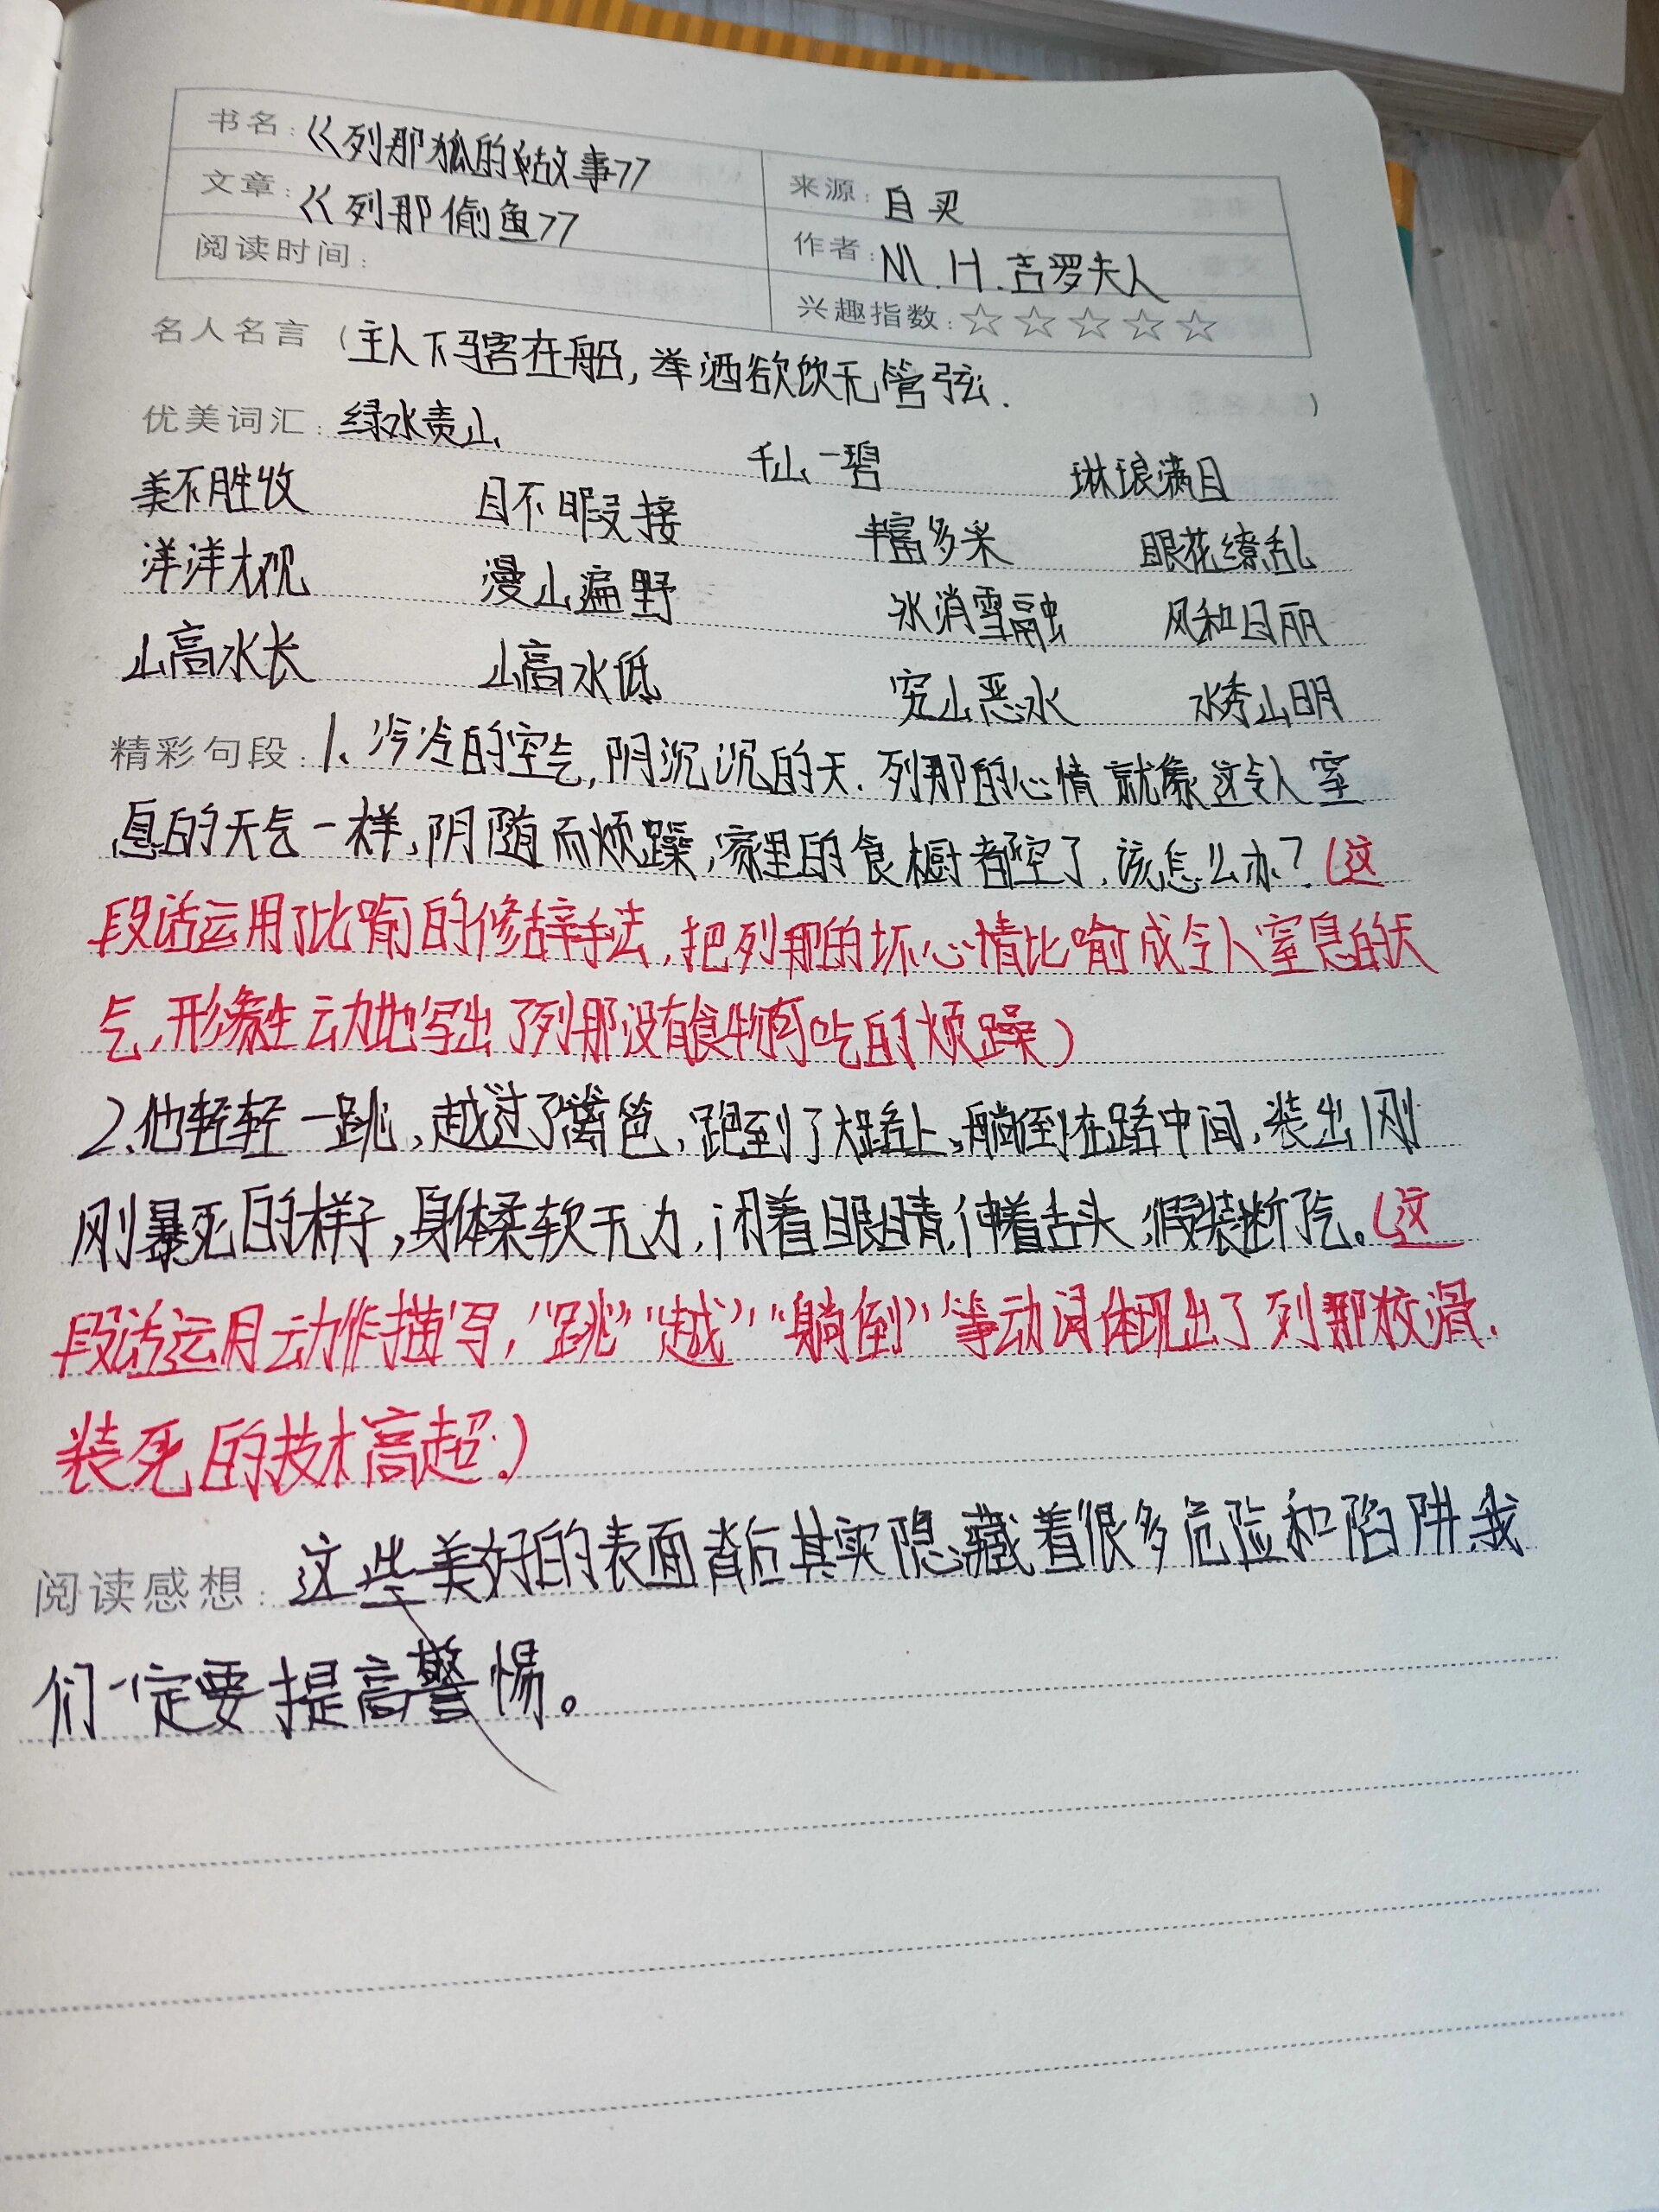 书名：《列那狐的故事》
来源：自买
文章：《列那偷鱼》
作者：M.H.吉罗夫人
阅读时间：
兴趣指数：☆☆☆☆☆
名人名言（主人下马客在船，举酒欲饮无管弦.）
优美词汇：绿水青山 千山一碧 琳琅满目
美不胜收 目不暇接 丰富多采 眼花缭乱
洋洋大观 漫山遍野 冰消雪融 风和日丽
山高水长 山高水低 穷山恶水 水秀山明
精彩句段：1、冷冷的空气，阴沉沉的天．列那的心情就象这令人窒
息的天气一样，阴随而烦躁，家里的食橱都空了，该怎么办？（这
段话运用了比喻的修辞手法，把列那的坏心情比喻成令人窒息的天
气，形象生动地写出了列那没有食物可吃的烦躁）
2、他轻轻一跳，越过了篱笆，跑到了大路上，躺倒在路中间，装出刚
刚暴死的样子，身体柔软无力，闭着眼睛，伸着舌头，假装断了气。（这
段话运用动作描写，“跳”“越”“躺倒”等动词体现出了列那狡滑．
装死的技术高超．）
阅读感想：这些美好的表面背后其实隐藏着很多危险和陷阱，我
们一定要提高警惕。